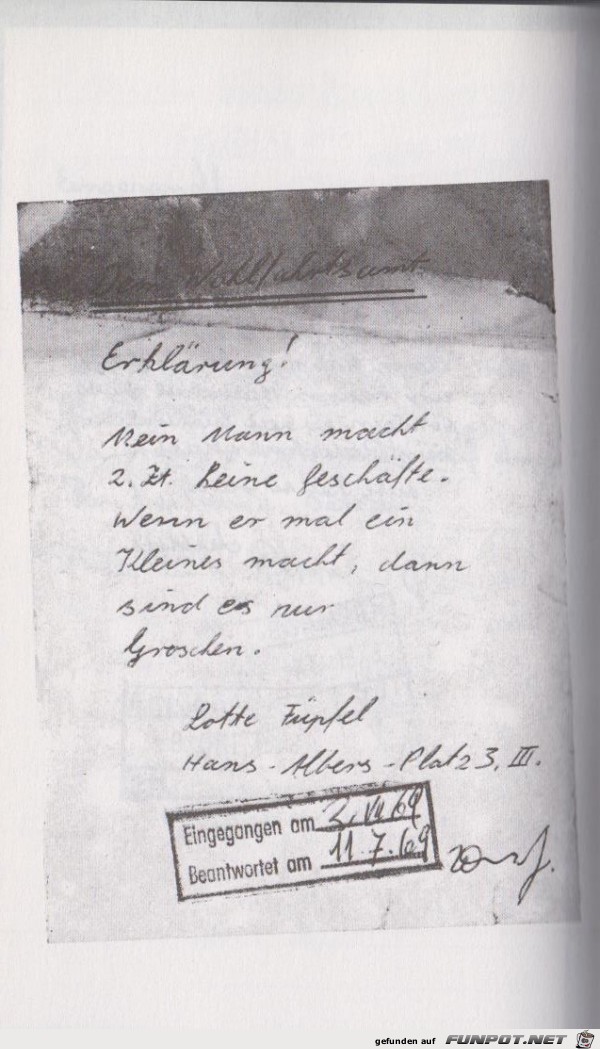 Dem Wohlfahrtsamt.
Erklärung!
Mein Mann macht
z. Zt. keine Geschäfte.
Wenn er mal ein
Kleines macht, dann
sind es nur
Groschen.
Lotte Füpfel
Hans-Albers-Platz 3, III.
Eingegangen am 2. VII 69
Beantwortet am 11.7.69
gefunden auf FUNPOT.NET